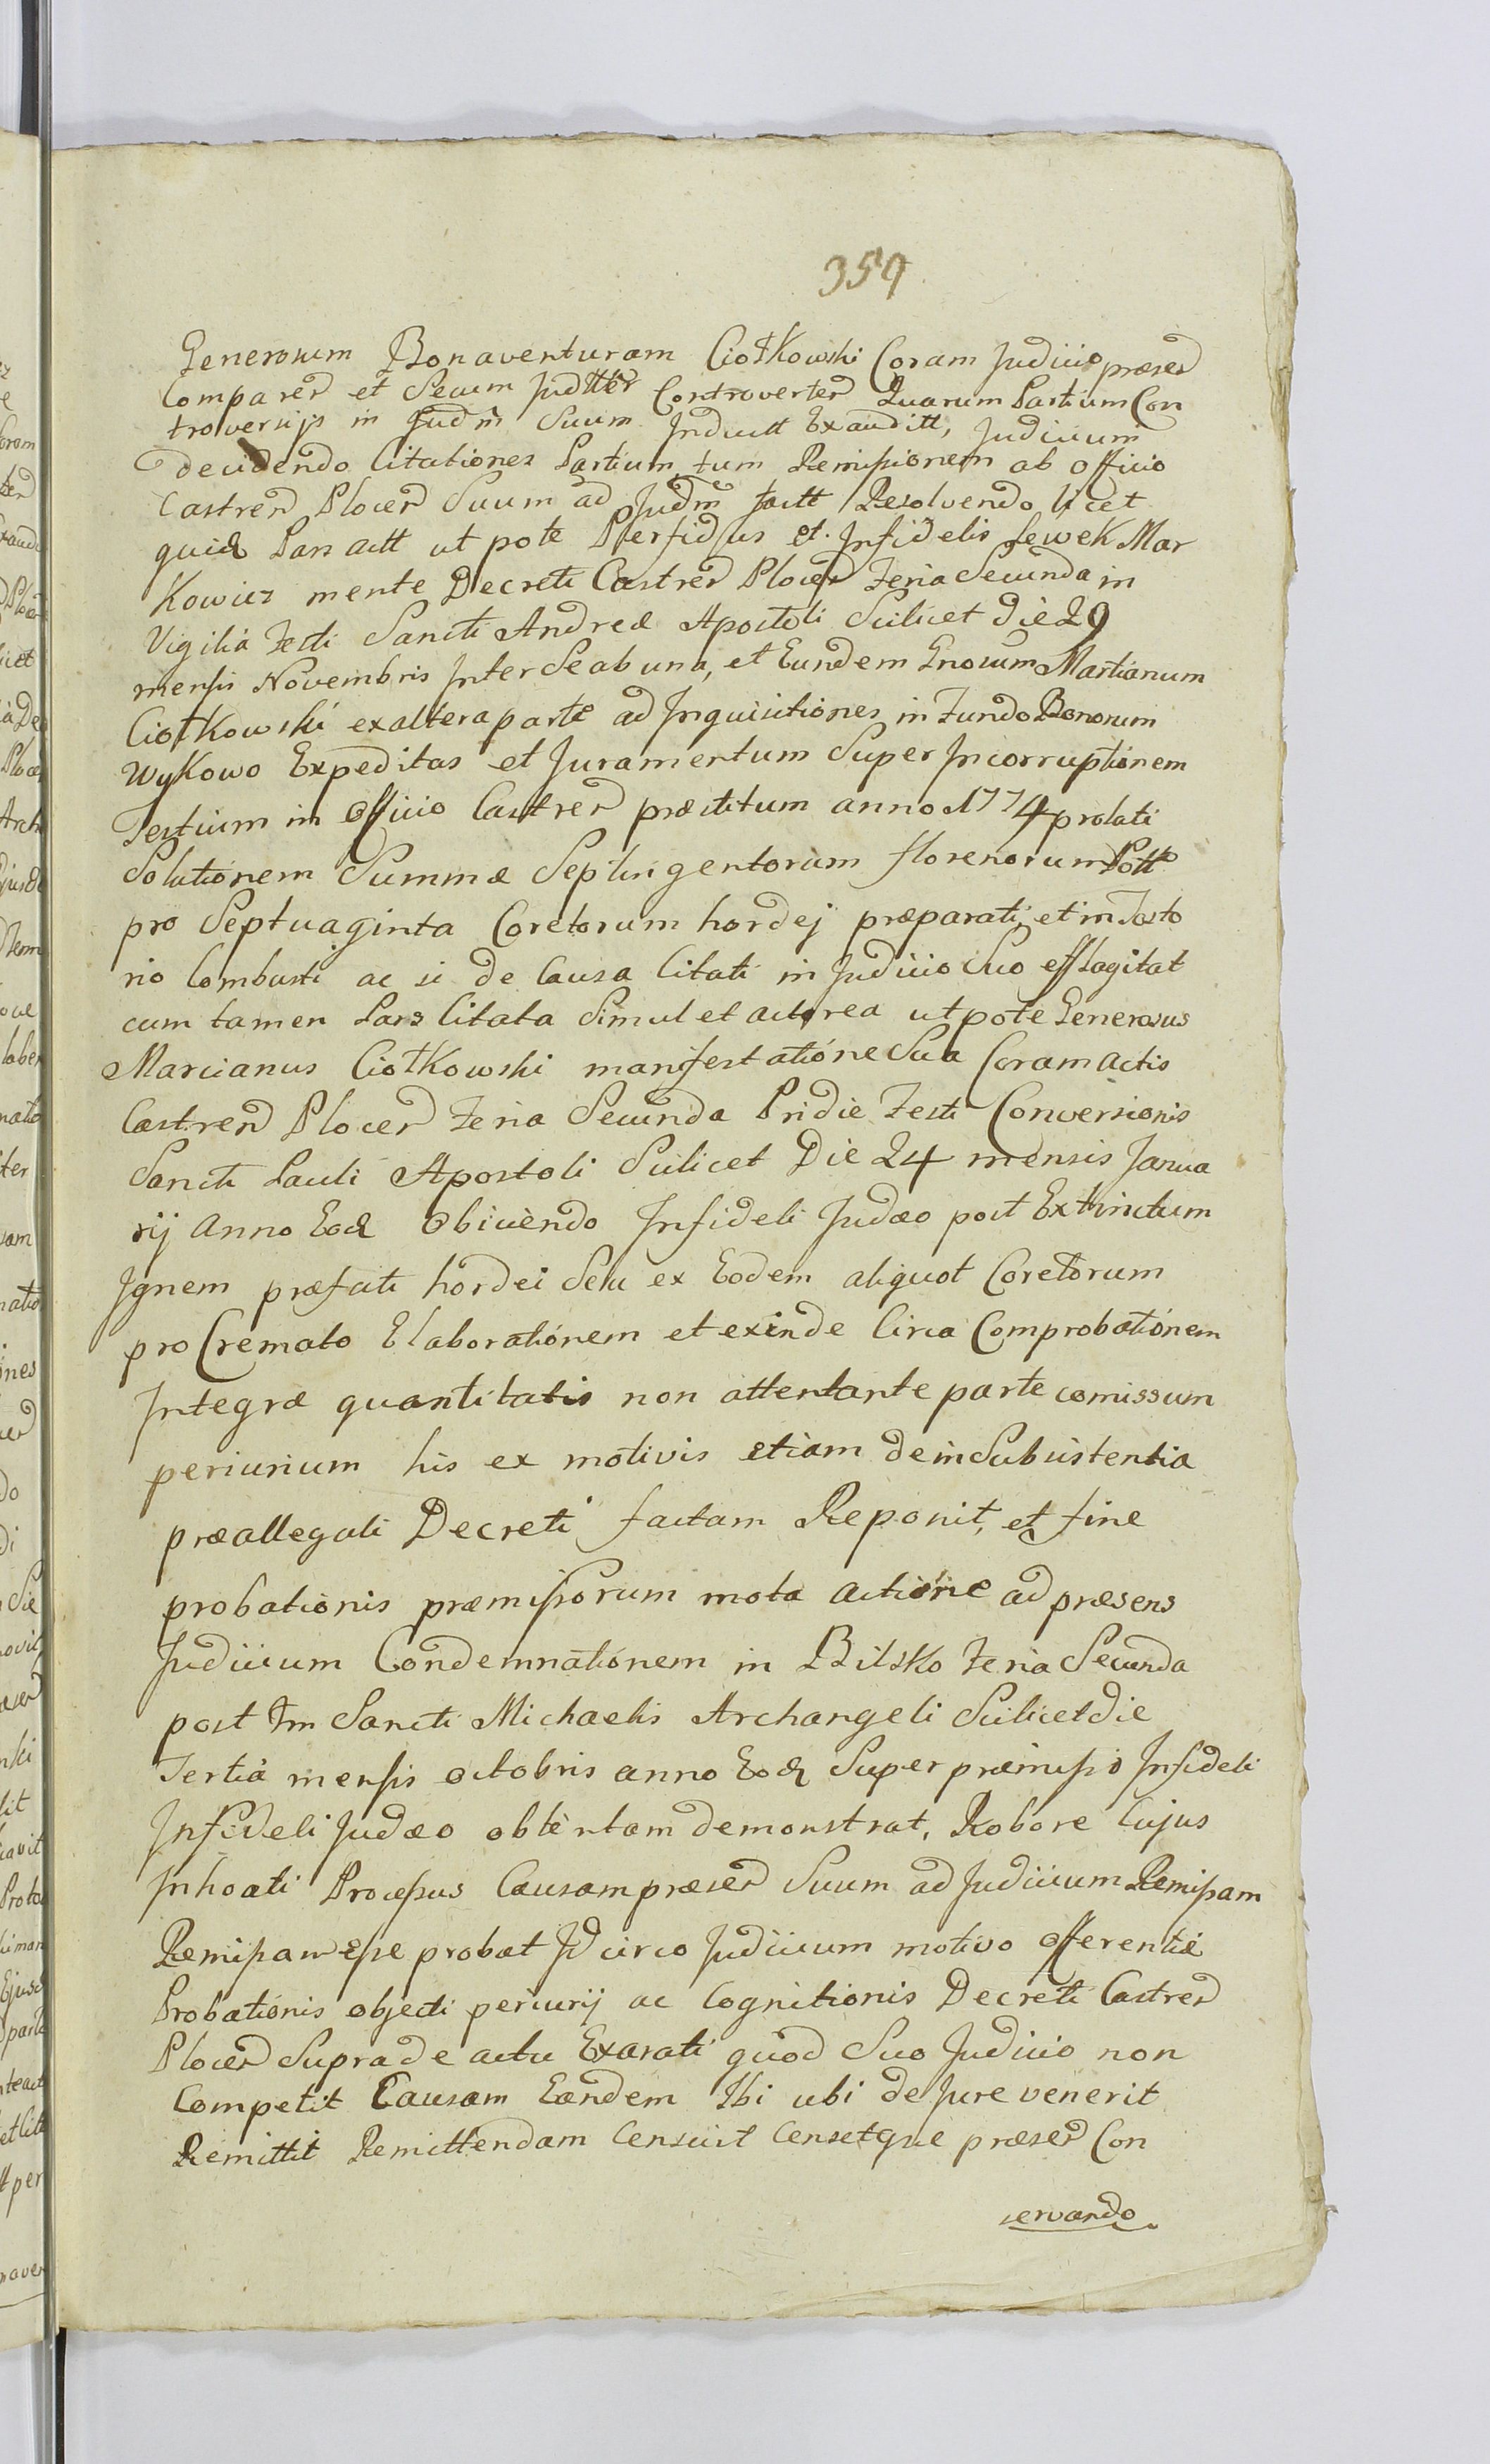 359
Generosum Bonaventuram Ciołkowski Coram Judicio præsen
Comparen et Secum Judttèr Controverten Quarum Partium Con
troversijs in Judm̃ Suum Induett Exauditt, Judicium
decidendo Citationes Partium tum Remissionem ab officio
Castren Plocen Suum ad Judm̃ factt Resolvendo licet
quid Pars actt ut pote Perfidus et Infidelis Lewek Mar
Kowicz mente Decreti Castren Plocen Feria Secunda in
Vigilia Festi Sancti Andreæ Apostoli Scilicet Die 29
mensis Novembris Inter Se ab una, et Eundem Gnosum Martianum
Ciołkowski ex altera parte ad Inquisitiones in Fundo Bonorum
Wykowo Expeditas et Juramentum Super Incorruptionem
Testium in Officio Castren præstitum anno 1774 prolati
Solutionem Summæ Septingentorum florenorum Poll
pro Septuaginta Coretorum hordej præparati, et in Tosto
rio Combusti ac si de Causa Citati in Judicio Suo efflagitat
cum tamen Pars Citata Simul et actorea ut pote Generosus
Marcianus Ciołkowski manifestatióne Sua Coram actis
Castren Plocen Feria Secunda Pridie Festi Conversionis
Sancti Pauli Apostoli Scilicet Die 24 mensis Janua
rij Anno Eod Obiciendo Infideli Judæo post Extinctum
Ignem præfati hordei Seu ex Eodem aliquot Coretorum
pro Cremato Elaborationem et exinde Circa Comprobationem
Integræ quantitatis non attentante parte comissum
periurium his ex motivis etiam de in Subsistentia
præallegati Decreti factam Reponit, et fine
probationis præmissorum mota actione ad præsens
Judicium Condemnationem in Bilsko Feria Secunda
post Fm Sancti Michaelis Archangeli Scilicet die
Tertia mensis octobris anno Eod Super præmisso Infideli
Infideli Judæo obtentam demonstrat, Robore Cujus
Inhoati Processus Causam præsen Suum ad Judicium Remissam
Remissam esse probat Idcirco Judicium motivo offerentiæ
Probationis objecti periurij ac Cognitionis Decreti Castren
Plocen Supra de actu Exarati quod Suo Judicio non
Competit Causam Eandem Ibi ubi de Jure venerit
Remittit Remittendam Censuit Censetque præsen Con
servando